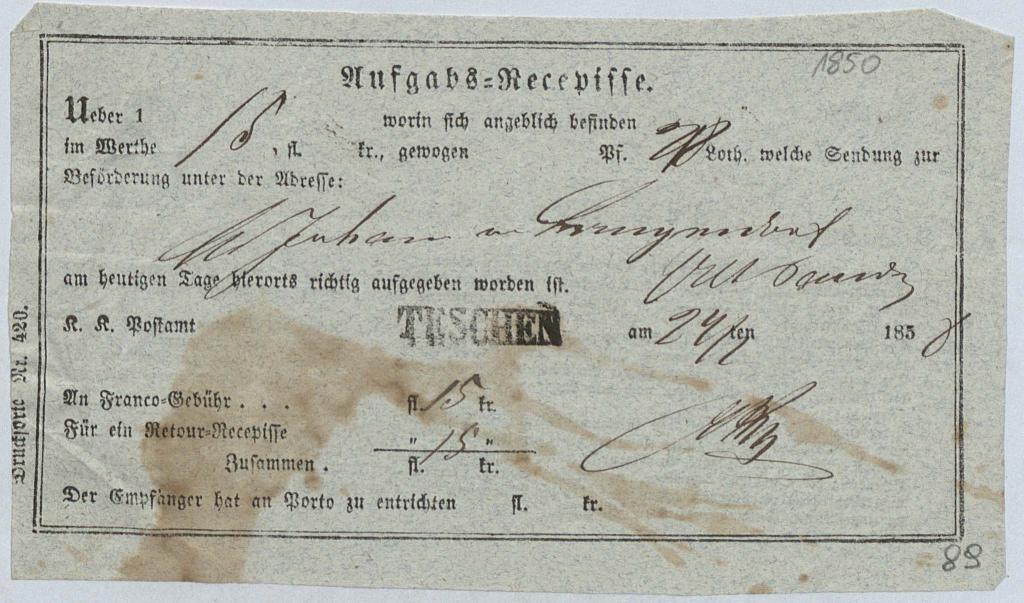 1850
Aufgabs=Recepisse.
Ueber 1 worin sich angeblich befinden
im Werthe 15, fl. kr., gewogen Pf. 28 Loth. welche Sendung zur
Beförderung unter der Adresse:
Johann
am heutigen Tage hierorts richtig aufgegeben worden ist.
K. K. Postamt TESCHEN am 24/7 ten 1858
An Franco=Gebühr . . . fl. 15 kr.
Für ein Retour=Recepisse " "
Zusammen . fl. 15 kr.
Der Empfänger hat an Porto zu entrichten fl. kr.
Drucksorte Nr. 420.
89